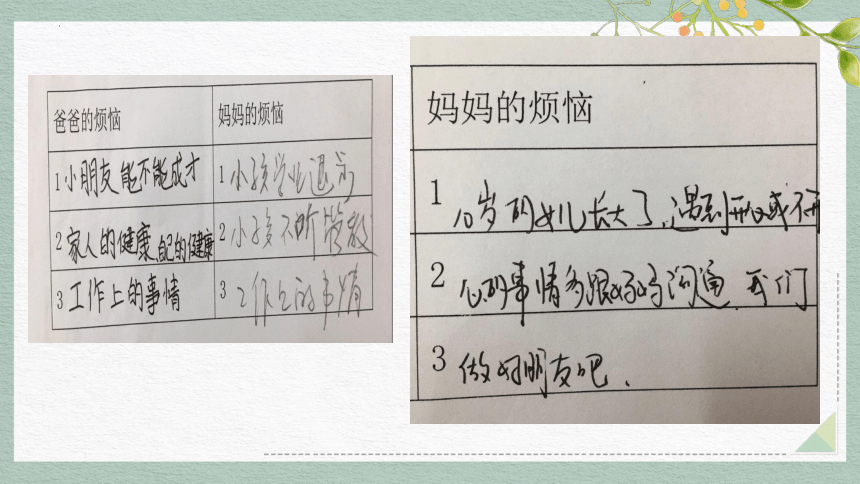 爸爸的烦恼 妈妈的烦恼
1 小朋友能不能成才 1 小孩学业退步
2 家人的健康,自己的健康 2 小孩不听管教
3 工作上的事情 3 工作上的事情
妈妈的烦恼
1 10岁的女儿长大了,遇到开心或不开
2 心的事情多跟妈妈沟通,我们
3 做好朋友吧.